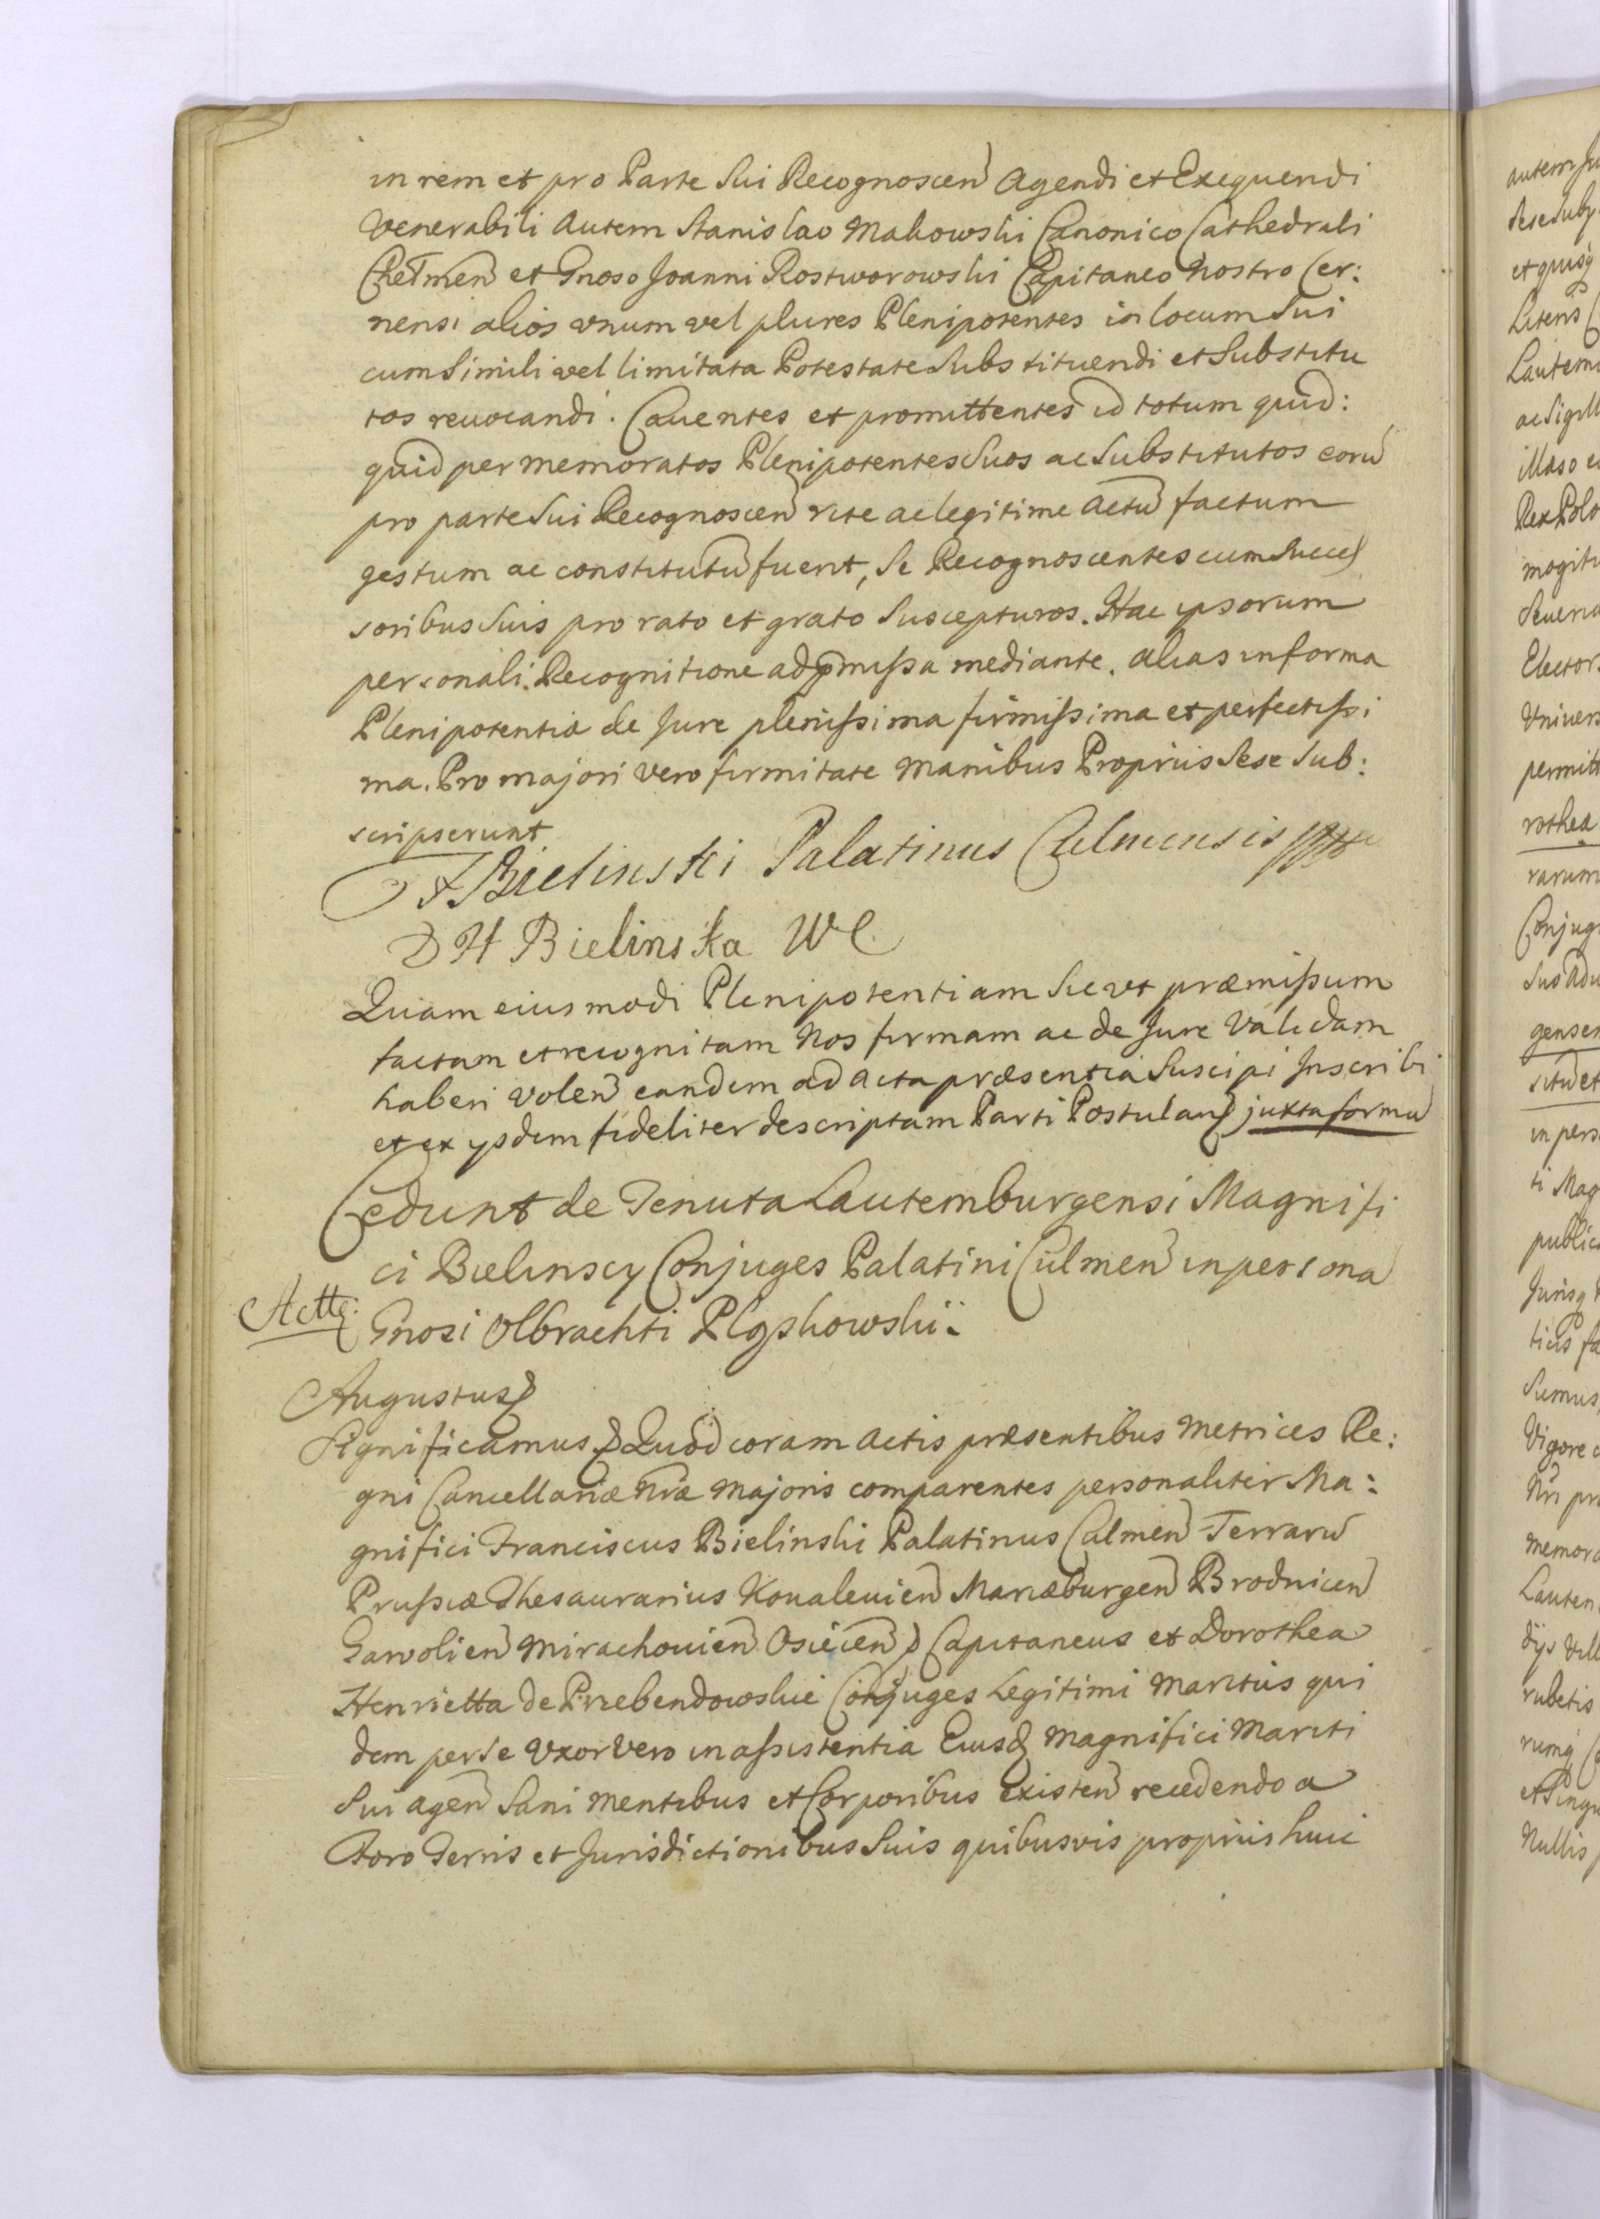 in rem et pro Parte Sui Recognoscen Agendi et Exequendi
Venerabili Autem Stanislao Makowski Canonico Cathedrali
Chelmen et Gnoso Joanni Rostworowski Capitaneo Nostro Cer:
nensi alios vnum vel plures Plenipotentes in locum Sui
cum Simili vel limitata Potestate Substituendi et Substitu
tos reuocandi. Cauentes et promittentes id totum quid:
quid per memoratos Plenipotentes Suos ac Substitutos eorū
pro parte Sui Recognoscen rite ac legitime actū factum
gestum ac constitutū fuerit, Se Recognoscentes cum Succes
soribus Suis pro rato et grato Suscepturos. Hac ipsorum
personali Recognitione ad pmissa mediante. alias in forma
Plenipotentiæ de Jure plenissima firmissima et perfectissi
ma. Pro majori vero firmitate Manibus Proprijs Sese Sub:
scripserunt
F Bielinski Palatinus Culmensis
D H Bielinska WC
Quam eiusmodi Plenipotentiam Sic vt præmissum
factam et recognitam Nos firmam ac de Jure Validam
haberi volen eandem ad Acta præsentia Suscipi Inscribi
et ex ysdem fideliter descriptam Parti Postulan juxta formā
Cedunt de Tenuta Lautemburgensi Magnifi
ci Bielinscy Conjuges Palatini Culmen in persona
Gnosi Olbrachti Pląskowski.
Augustus
Significamus Quod coram Actis præsentibus Metrices Re:
gni Cancellariæ Nræ Majoris comparentes personaliter Ma:
gnifici Franciscus Bielinski Palatinus Culmen Terrarū
Prussiæ Thesaurarius Koualeuien Mariæburgen Brodnicen
Garvolien Mirachouien Osiecen Capitaneus et Dorothea
Henrietta de Przebendowskie Conjuges Legitimi Maritus qui
dem per Se Vxor Vero in assistentia Eiusd Magnifici Mariti
Sui agen Sani Mentibus et Corporibus existen recedendo a
Foro Terris et Jurisdictionibus Suis quibusvis proprijs huic
rothea
rarum
permitt
Lautem
illæso
Rex Polo
Elector
publice
Sumus
Vigore
memora
Nullis